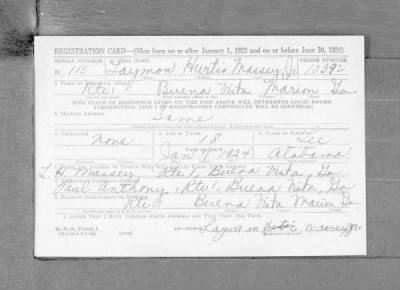 REGISTRATION CARD—(Men born on or after January 1, 1922 and on or before June 30, 1924)
SERIAL NUMBER 1. NAME (Print) ORDER NUMBER
N 115 Laymon Hurtis Massey Jr. 10392
2. PLACE OF RESIDENCE (Print)
Rte. 1 Buena Vista Marion Ga
[THE PLACE OF RESIDENCE GIVEN ON THE LINE ABOVE WILL DETERMINE LOCAL BOARD
JURISDICTION; LINE 2 OF REGISTRATION CERTIFICATE WILL BE IDENTICAL]
3. MAILING ADDRESS
Same
4. TELEPHONE 5. AGE IN YEARS 6. PLACE OF BIRTH
None 18 Lee
DATE OF BIRTH
Jan 9 1924 Alabama
7. NAME AND ADDRESS OF PERSON WHO WILL ALWAYS KNOW YOUR ADDRESS
L. H. Massey, Rte 1, Buena Vista, Ga
8. EMPLOYER'S NAME AND ADDRESS
Paul Anthony, Rte 1, Buena Vista, Ga
9. PLACE OF EMPLOYMENT OR BUSINESS
Rte 1 Buena Vista Marion Ga
I AFFIRM THAT I HAVE VERIFIED ABOVE ANSWERS AND THAT THEY ARE TRUE.
D. S. S. Form 1
Massey Jr